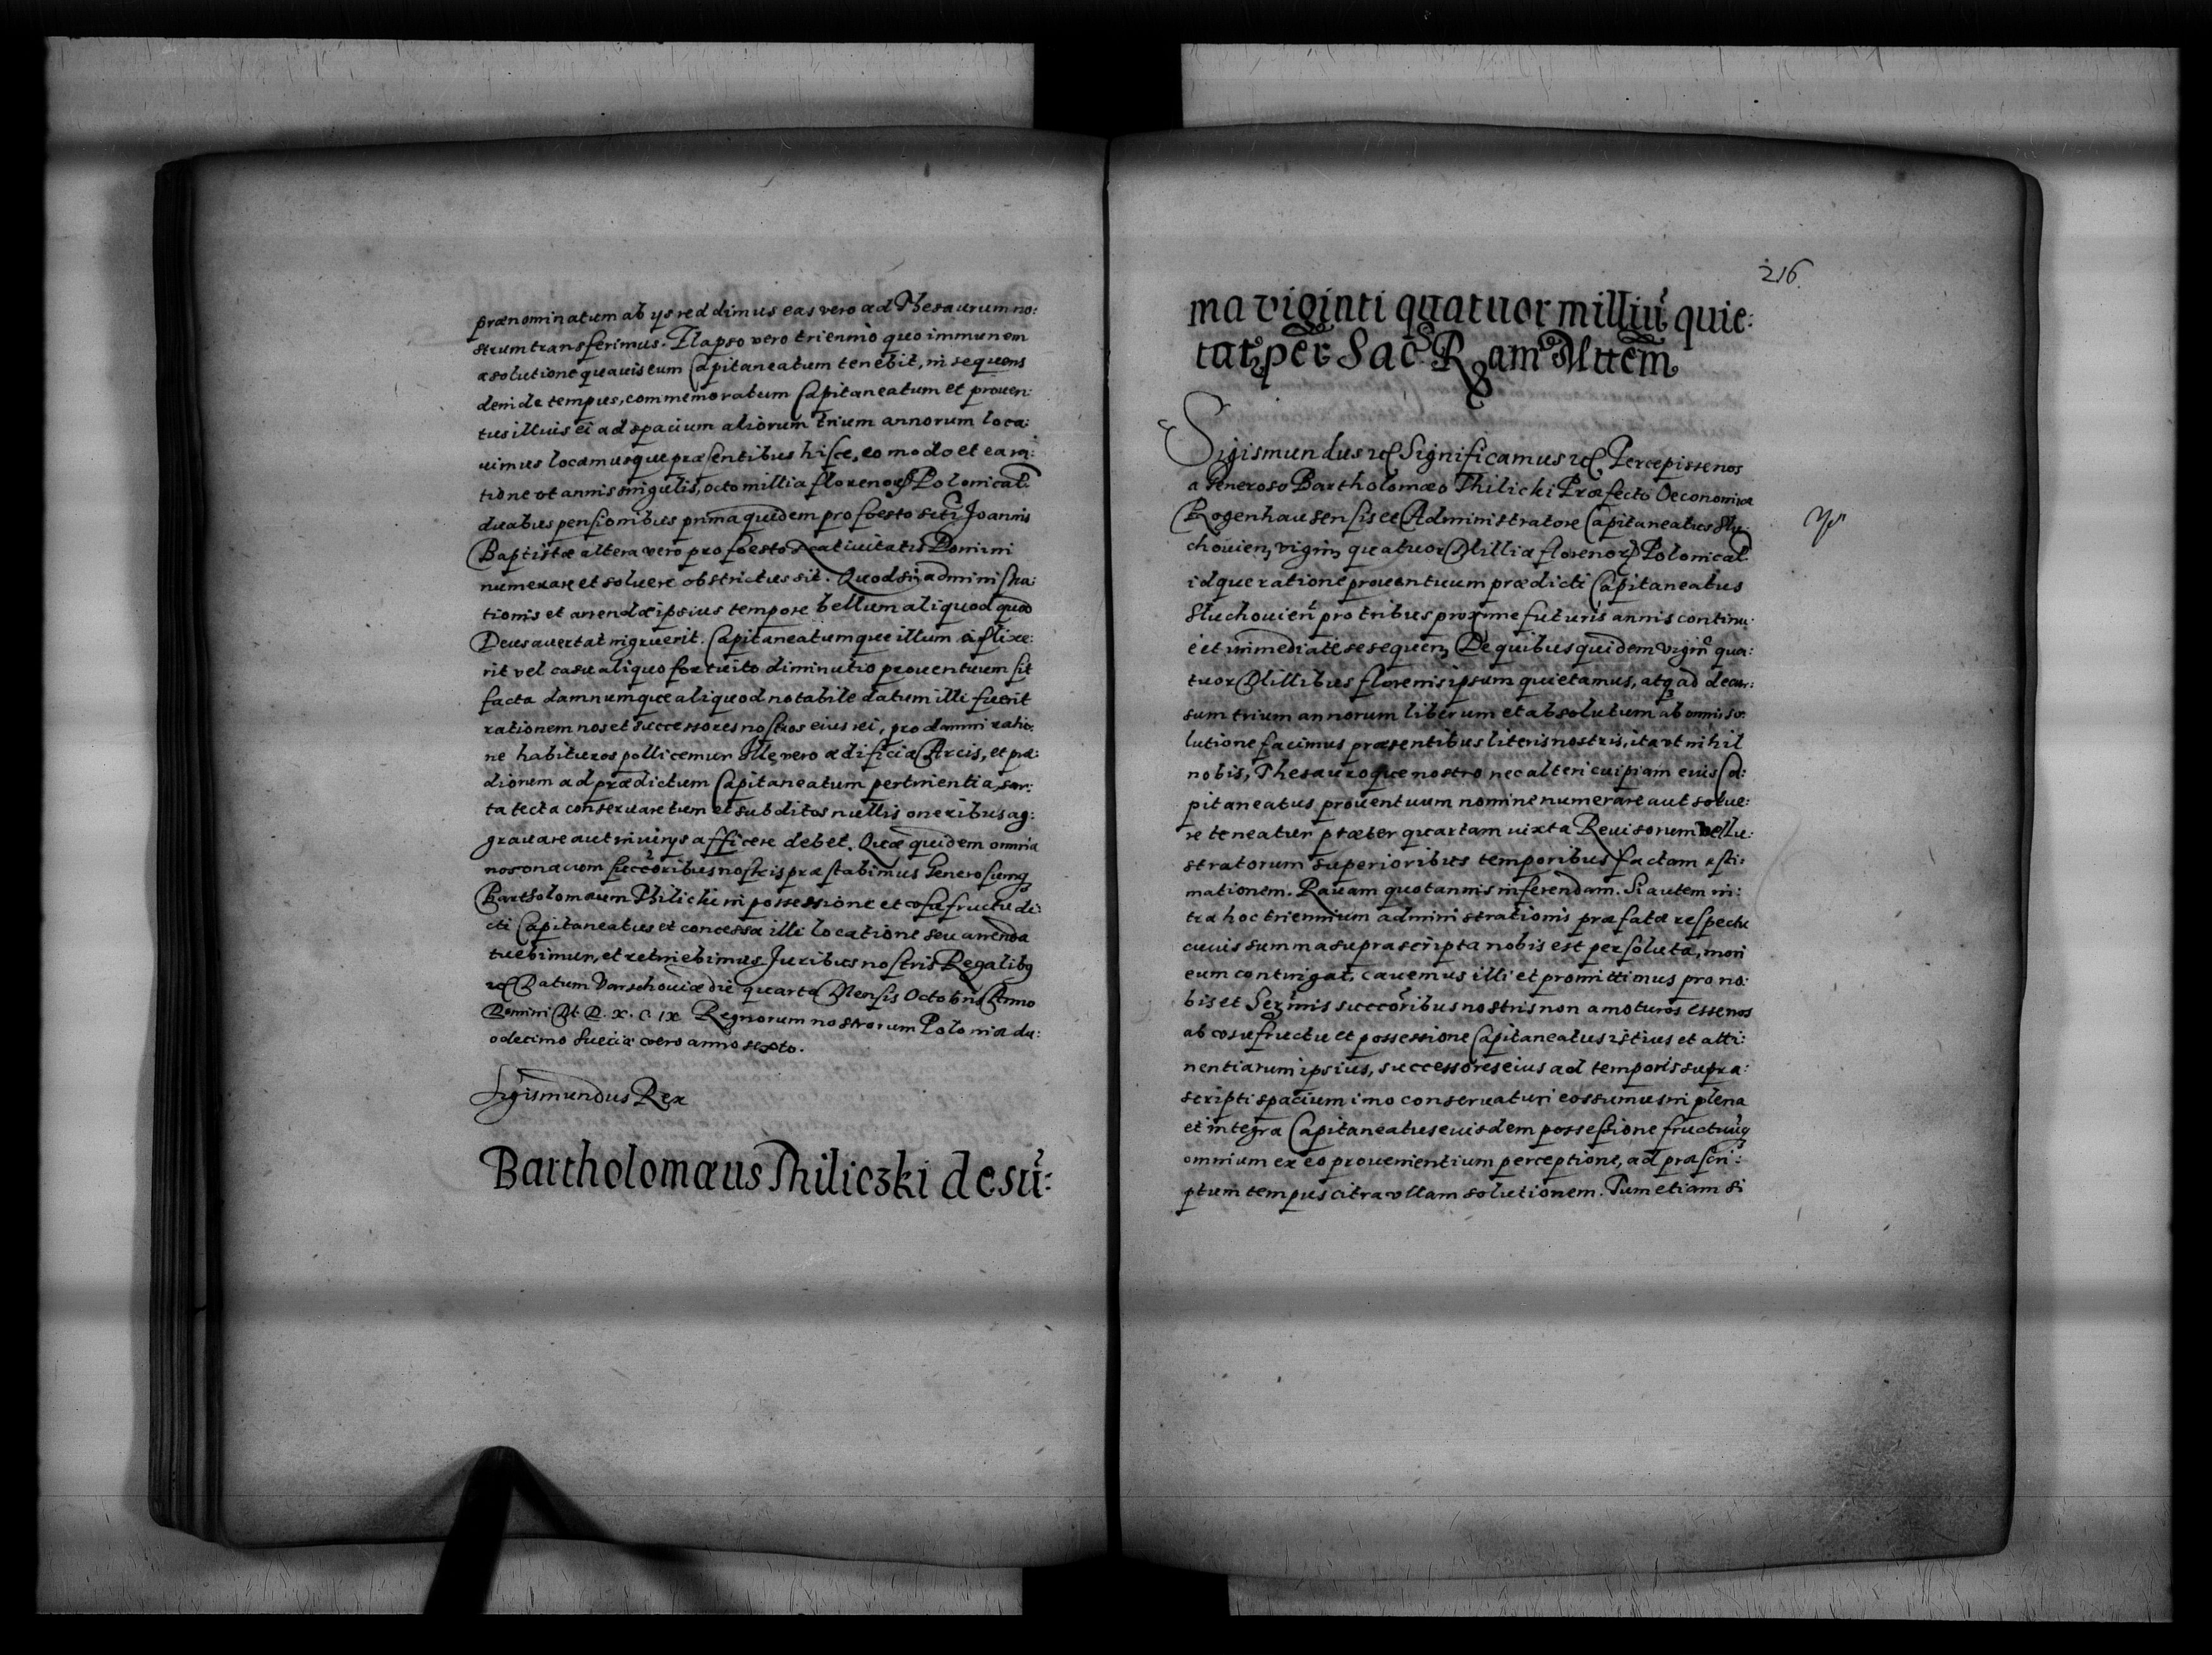 prænominatum ab ijs reddimus eas vero ad Thesaurum no:
strum transferimus. Elapso vero triennio quo immunem
a solutione quavis eum Capitaneatum tenebit, in sequens
deinde tempus, commemoratum Capitaneatum et proven:
tus illius ei ad spacium aliorum trium annorum loca:
uimus locamusque præsentibus hisce, eo modo et ea ra:
tione vt annis singulis, octo millia florenor Polonical
duabus pensionibus prima quidem pro foesto scti Joannis
Baptistæ altera vero pro foesto Nativitatis Domini
numerare et soluere obstrictus sit. Quod si administra:
tionis et arendæ ipsius tempore bellum aliquod quod
Deus avertat ingruerit. Capitaneatumque illum aflixe:
rit vel casu aliquo fortuito diminutio proventuum sit
facta damnumque aliquod notabile datum illi fuerit
rationem nos et successores nostros eius rei, pro damni ratio:
ne habituros pollicemur Ille vero ædificia Arcis, et præ:
diorum ad prædictum Capitaneatum pertinentia, sar:
ta tecta conseruare tum et subditos nullis oneribus ag:
grauare aut iniurijs afficere debet. Quæ quidem omnia
nos ona cum succoribus nostris præstabimus Generosumq
Bartholomæum Thilicki in possessione et vsufructu di:
cti Capitaneatus et concessa illi locatione seu arrenda
tuebimur, et retinebimus Juribus nostris Regalibq
Datum Varschouiæ die quarta Mensis Octobris Anno
Domini M. D. X. C. IX Regnorum nostrorum Poloniæ du:
odecimo Sueciæ vero anno sexto.
Sigismundus Rex
Bartholomæus Thiliczki de sū:
216.
ma viginti quatuor milliū quie:
tat per Sac R am Mttem
Sigismundus Significamus Percepisse nos
a Generoso Bartholomæo Thilicki Præfecto Oeconomiæ
Rogenhausensis et Administratore Capitaneatus Slu:
chouien, vigin quatuor Millia florenor Polonical
idque ratione proventuum prædicti Capitaneatus
Sluchouien pro tribus proxime futuris annis continu:
e et immediate se sequen De quibus quidem vigin qua:
tuor Millibus florenis ipsum quietamus, atq ad decur:
sum trium annorum liberum et absolutum ab omni so:
lutione facimus præsentibus literis nostris, ita vt nihil
nobis, Thesauroque nostro nec alteri cuipiam eius Ca:
pitaneatus proventuum nomine numerare aut solue:
re teneatur præter quartam iuxta Reuisorum vel Lu:
stratorum superioribus temporibus factam æsti:
mationem. Rauam quotannis inferendam. Si autem in:
tra hoc triennium administrationis præfatæ respectu
cuius summa suprascripta nobis est persoluta, mori
eum contingat, cauemus illi et promittimus pro no:
bis et Sermis succoribus nostris non amoturos esse nos
ab vsufructu et possessione Capitaneatus istius et atti:
nentiarum ipsius, successores eius ad temporis supra:
scripti spacium imo conseruaturi eos sumus in plena
et integra Capitaneatus eiusdem possessione fructuūq
omnium ex eo provenientium perceptione, ad præscri:
ptum tempus citra vllam solutionem. Tum etiam si